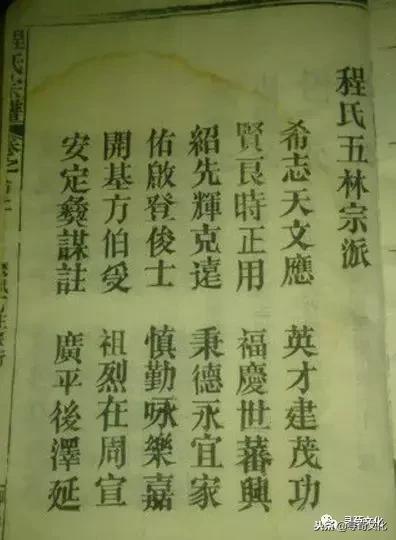 程氏五林宗派
希志天文應 英才建茂功
賢良時正用 福慶世蕃興
紹先輝克達 秉德永宜家
佑啟登俊士 慎勤咏樂嘉
開基方伯受 祖烈在周宣
安定謀註 廣平後澤延
程氏宗譜 卷之
文化